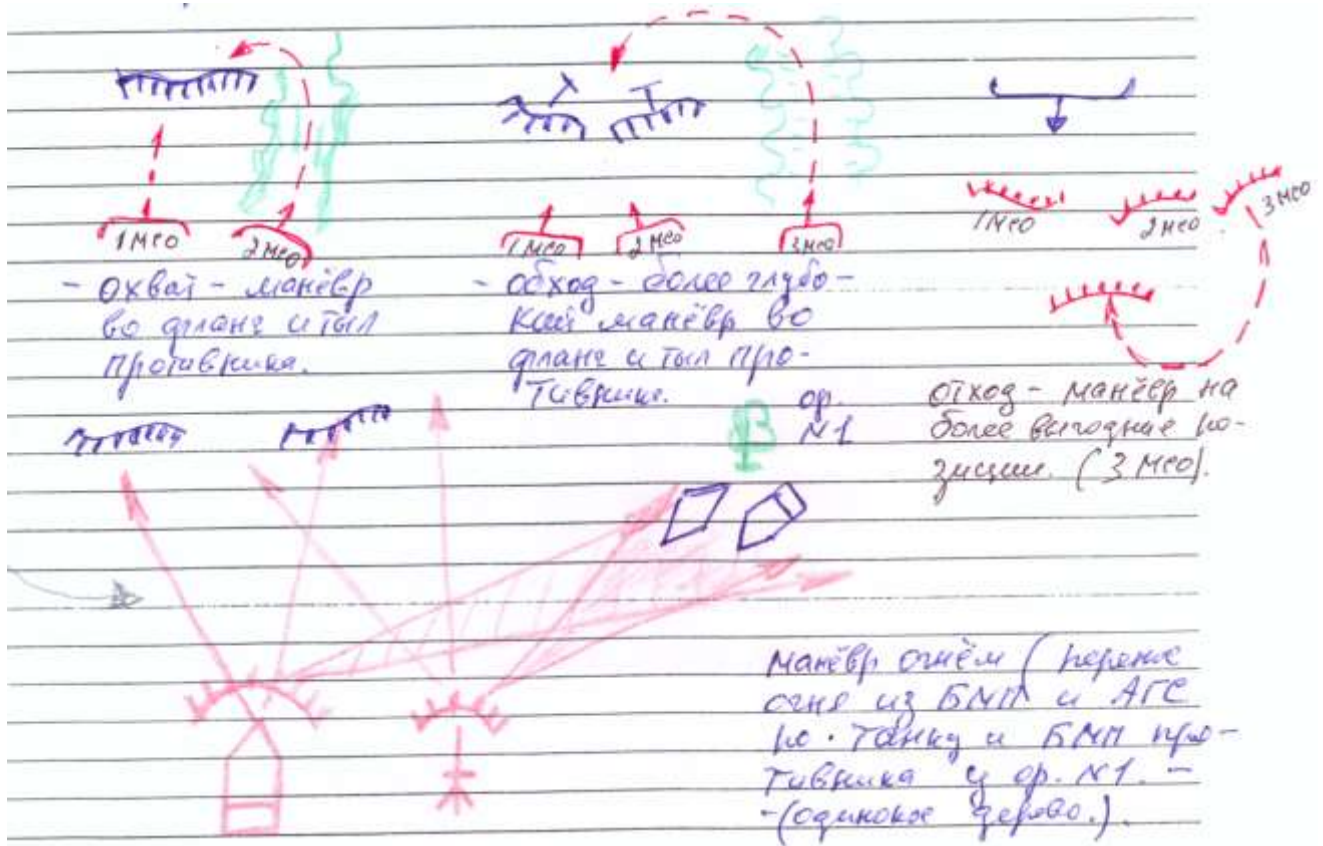 1 мсо
2 мсо
- охват - манёвр
во фланг и тыл
противника.
1 мсо
2 мсо
3 мсо
- обход - более глубо-
кий манёвр во
фланг и тыл про-
тивника.
1 мсо
2 мсо
3 мсо
отход - манёвр на
более выгодные по-
зиции. (3 мсо).
ор.
N1
манёвр огнём (перенос
огня из БМП и АГС
по танку и БМП про-
тивника у ор. N1. -
- (одинокое дерево.).